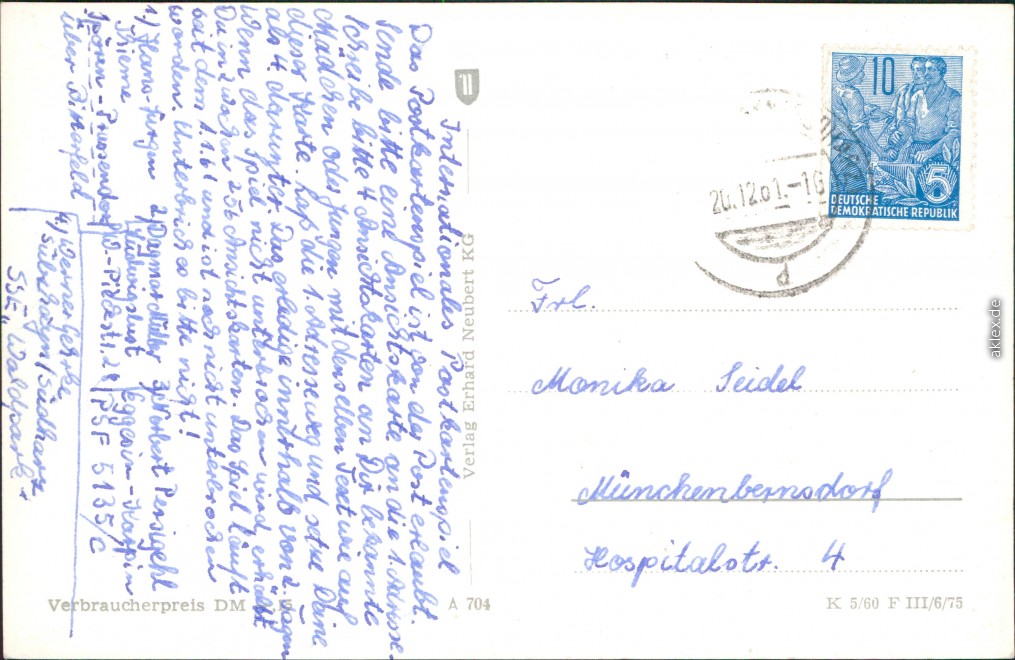 Internationales Postkartenspiel
Das Postkartenspiel ist von der Post erlaubt.
Sende bitte eine Ansichtskarte an die 1. Adresse.
Schreibe bitte 4 Ansichtskarten an Dir bekannte
Mädchen oder Jungen mit denselben Texture auf
dieser Karte. Laß die 1. Adresse weg und setze Deine
als 4 darunter. Das erledige innerhalb von 2 Tagen
Wenn das Spiel nicht unterbrochen wird, erhältst
Du in 2 Wochen 256 Ansichtskarten. Das Spiel läuft
seit dem 1.61 und ist noch nicht unterbrochen
worden. Unterbrich es bitte nicht!
1.) Hans-Jürgen 2) Dagmar Müller 3) Norbert Persigehl
Ludwigslust Eggesin-Karpin
W.-Pieckstr. 2 PSF 5135/C
über Bitterfeld
4.) Werner Gerke
Sülzhayn/Südharz
SST „Waldpark"
Verlag Erhard Neubert KG
Verbraucherpreis DM
A 704
10
5
DEUTSCHE
DEMOKRATISCHE REPUBLIK
20.12.61.-16
Frl.
Monika Seidel
Münchenbernsdorf
Hospitalstr. 4
K 5/60 F III/6/75
aklex.de